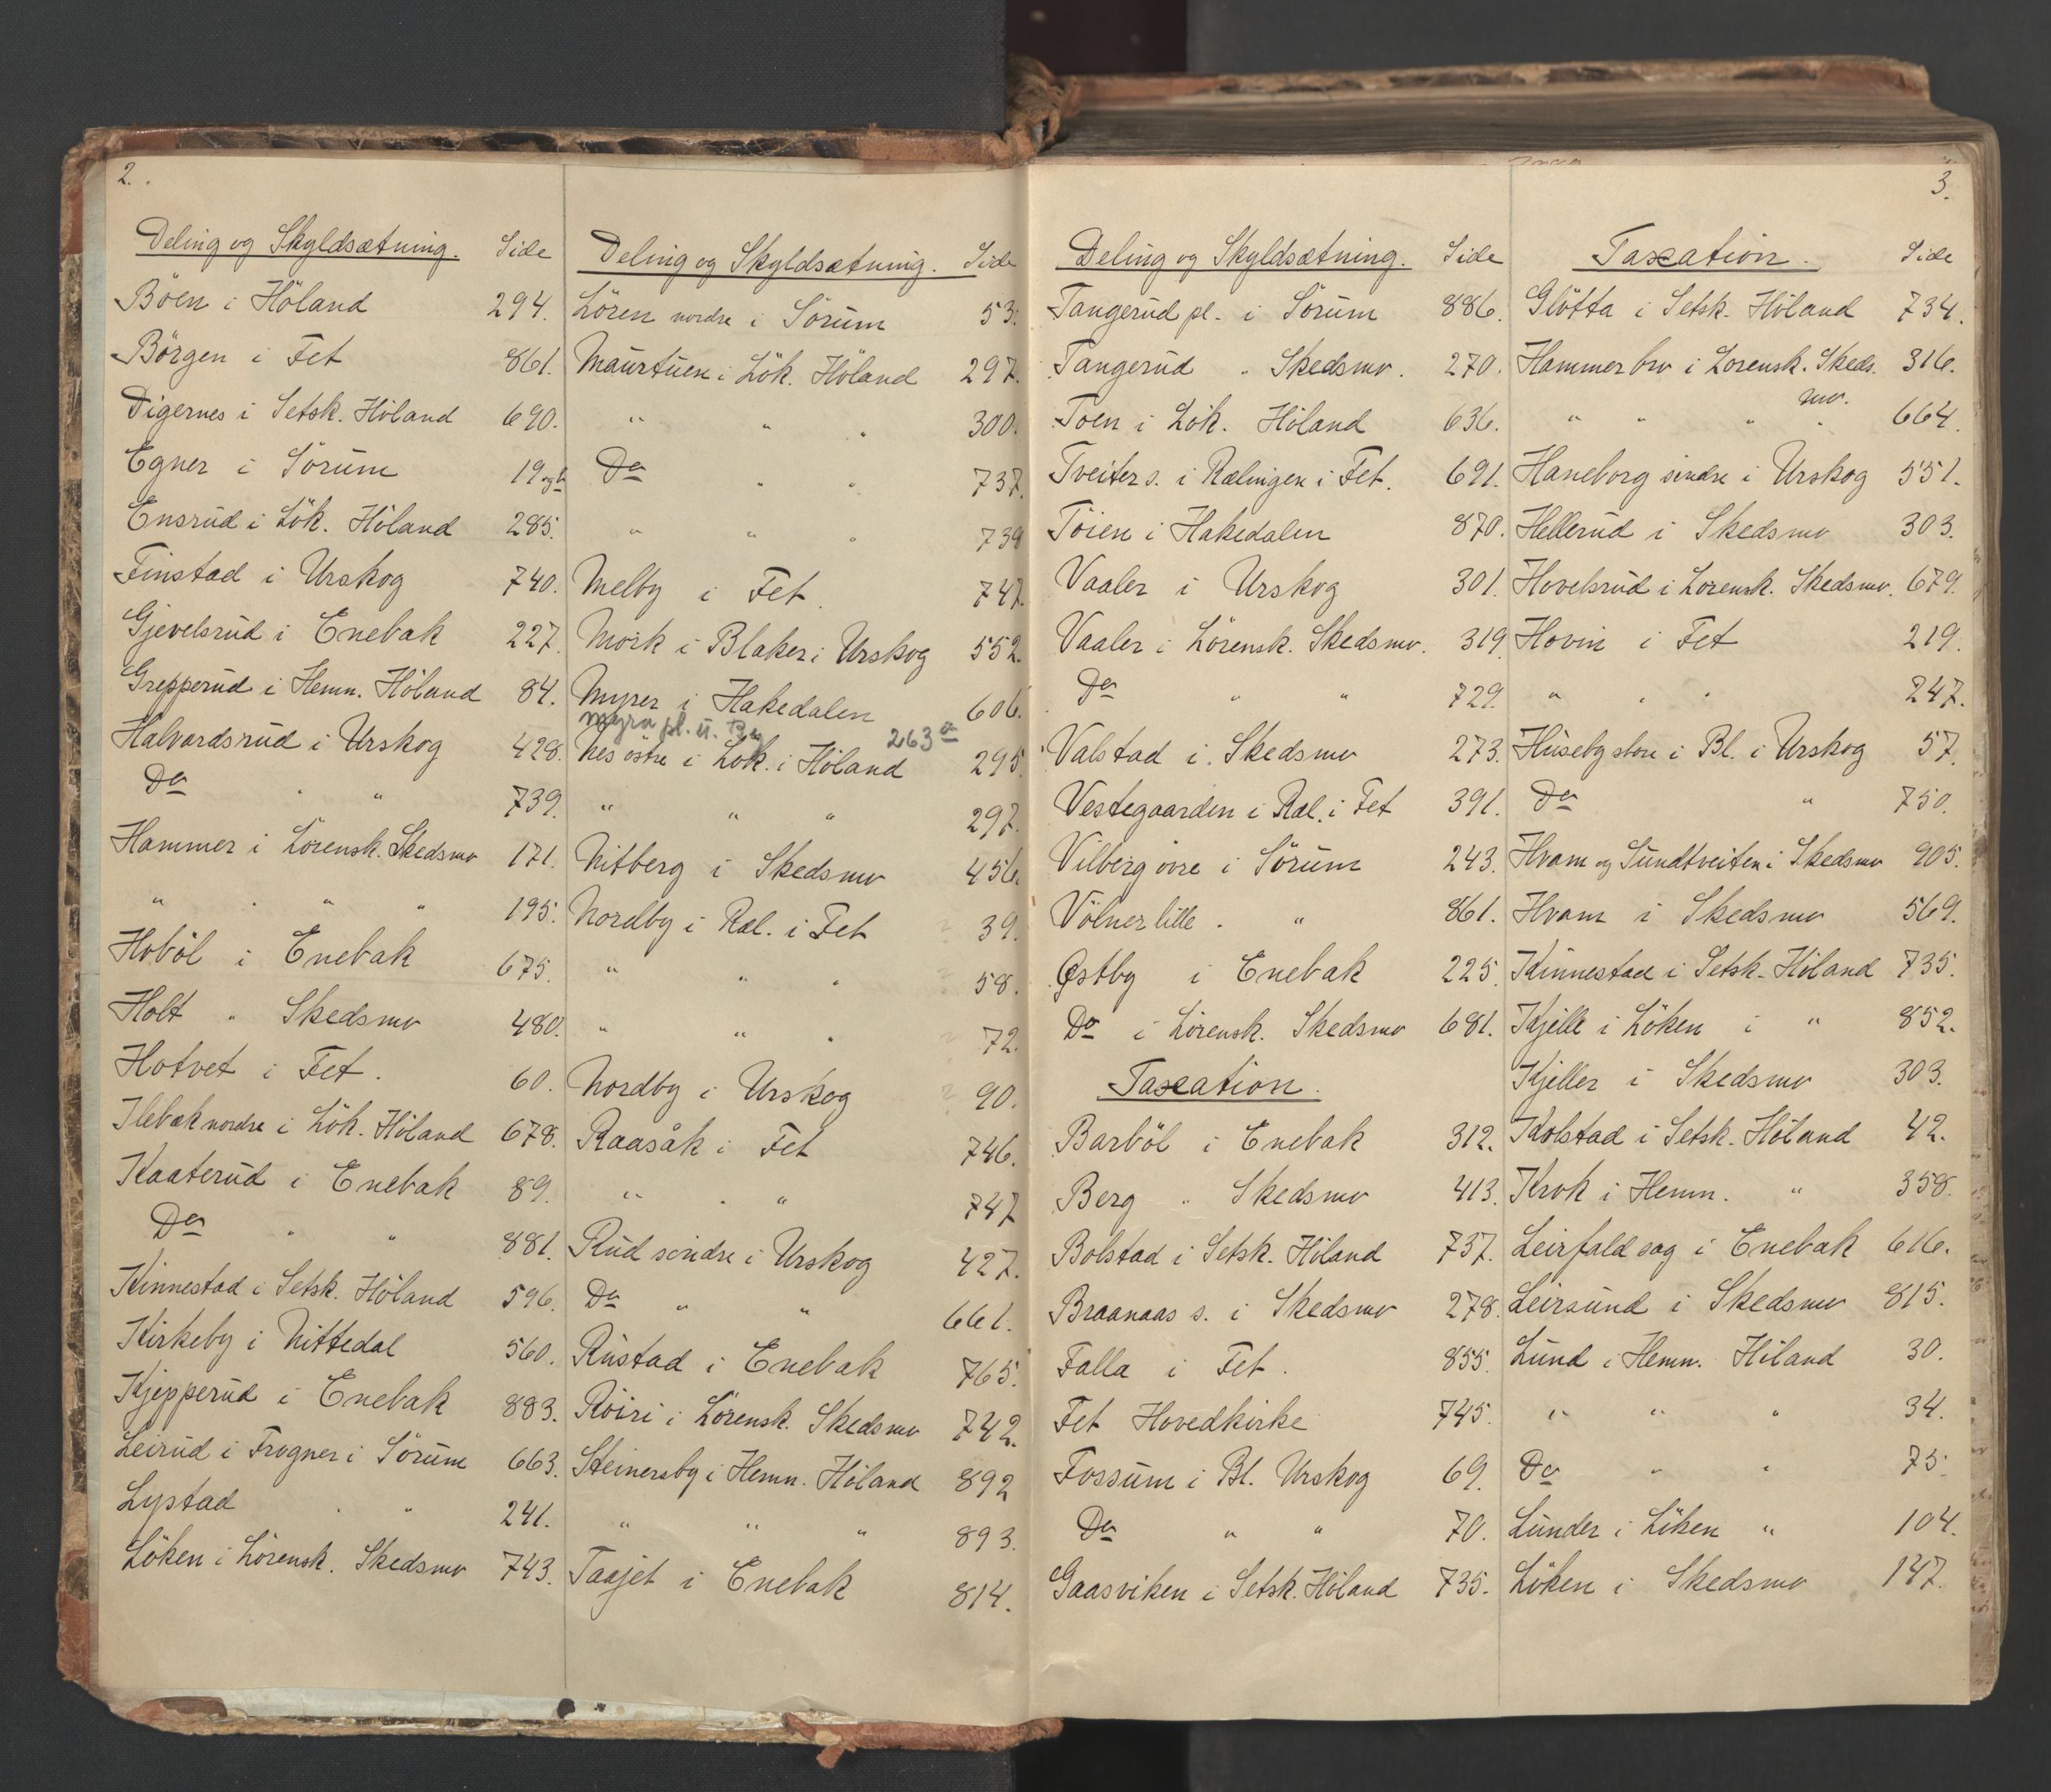 2.
Deling og Skyldsætning. Side
Böen i Höland 294.
Börgen i Fet 861.
Digernes i Setsk. Höland 690.
Egner i Sörum 19 og
Ensrud i Lök. Höland 285.
Finstad i Urskog 740.
Gjevelsrud i Enebak 227.
Grepperud i Hemn. Höland 84.
Halvardsrud i Urskog 428.
Do " " 739.
Hammer i Lörensk. Skedsmo 171.
" . " " 195.
Hoböl i Enebak 675.
Holt " Skedsmo 480.
Hotvet i Fet. 60.
Ilebæk nordre i Lök. Höland 678.
Kaaterud i Enebak 89.
Do " " 881.
Kinnestad i Setsk. Höland 596.
Kirkeby i Nittedal 560.
Kjepperud i Enebak 883.
Leirud i Frogner i Sörum 663.
Lystad . " 241.
Löken i Lörensk. Skedsmo 743.
Deling og Skyldsætning. Side
Lören nordre i Sörum 53.
Maurtuen i Lök. Höland 297.
" " " 300.
Do " " 737.
" " " 739
Melby i Fet. 747.
Mörk i Blaker i Urskog 552.
Myrer i Hakedalen 606.
myra pl. u. 263a
Nes östre i Lök. i Höland 295.
" " " 297.
Nitberg i Skedsmo 456.
Nordby i Ræl. i Fet 39.
" " " 58.
" " " 72.
Nordby i Urskog 90.
Raasåk i Fet 746.
" . " 747
Rud söndre i Urskog 427.
Do " " 661.
Rustad i Enebak 765.
Röiri i Lörensk. Skedsmo 742.
Steinersby i Hemn. Höland 892
" " " 893.
Taajet i Enebak 814.
3.
Deling og Skyldsætning. Side
Tangerud pl. i Sörum 886.
Tangerud " Skedsmo. 270.
Toen i Lök. Höland 636.
Tveiter s. i Rælingen i Fet. 691.
Töien i Hakedalen 870.
Vaaler i Urskog 301.
Vaaler i Lörensk. Skedsmo. 319.
Do " " 729.
Valstad i Skedsmo 273.
Vestegaarden i Ræl. i Fet 391.
Vilberg övre i Sörum 243.
Völner lille . " 861.
Østby i Enebak 225.
Do i Lörensk. Skedsmo 681.
Taxation.
Barböl i Enebak 312.
Berg " Skedsmo 413.
Bolstad i Setsk. Höland 737.
Braanaas s. i Skedsmo 278.
Falla i Fet. 855.
Fet Hovedkirke 745.
Fossum i Bl. Urskog 69.
Do " " 70.
Gaasviken i Setsk. Höland 735.
Taxation. Side
Glötta i Setsk. Höland 734.
Hammer bro i Lorensk. Skeds. 316.
mo.
" " " " 664.
Haneborg söndre i Urskog 551.
Hellerud i Skedsmo 303.
Hovelsrud i Lorensk. Skedsmo. 679.
Hovin i Fet 219.
" " " 247.
Huseby store i Bl. i Urskog 57.
Do " 750.
Hvam og Sundtveiten i Skedsmo 905.
Hvam i Skedsmo 569.
Kinnestad i Setsk. Höland 735.
Kjelle i Löken i " 852.
Kjeller i Skedsmo 303.
Kolstad i Setsk. Höland 42.
Krok i Hemn. " 358.
Leirfald sag i Enebak 616.
Leirsund i Skedsmo 815.
Lund i Hemn. Höland 30.
" " " 34.
Do " " 75.
Lunder i Löken " 104.
Löken i Skedsmo 147.